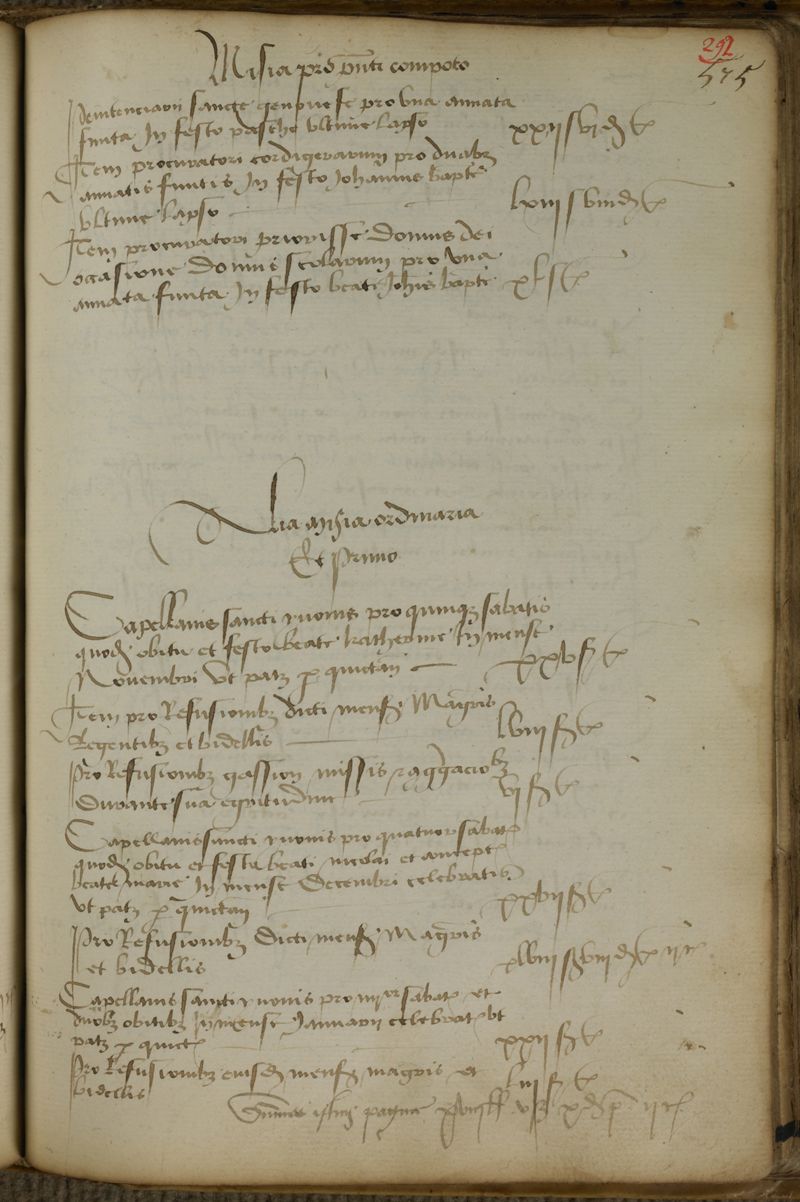 292
575
Misia pro pnti compoto
penitenciarii sancte genovefe pro una annata
finita In festo pasche ultime lapso xxii s vi d t
Item procuratori cordigerarum pro duabz
annatis finitis In festo Johannis bapte
ultime lapso lxvii s viii d t
Item procuratori priorisse domus dei
occasione domus scolarum pro una
annata finita In festo beati Johis bapte xl s t
Alia misia ordinaria
Et primo
Capellanis sancti yvonis pro quinqz sabatis
quodz obitu et festo beate katherine In mense
Novembri Ut patz p quictan xxv s t
Item pro Refusionibz dicti mensz Magris
Regentibz et bidellis
pro Refusionibz missis
Durante sua egritudine vi s t
Capellanis sancti yvonis pro quatuor sabat
quodz obitu et festis beati nicolai et concept
beate marie In mense Decembri celebratis
Ut patz p quictan xxvii s t
pro Refusionibz dicti mensz Magris
et bidellis
Capellanis sancti yvonis pro iiiior sabat et
duobz obitibz In mense Januarii celebrat ut
patz p quict xxii s t
pro Refusionibz eiusdz mensz magris et
bidellis liii s t
Summa istius pagine